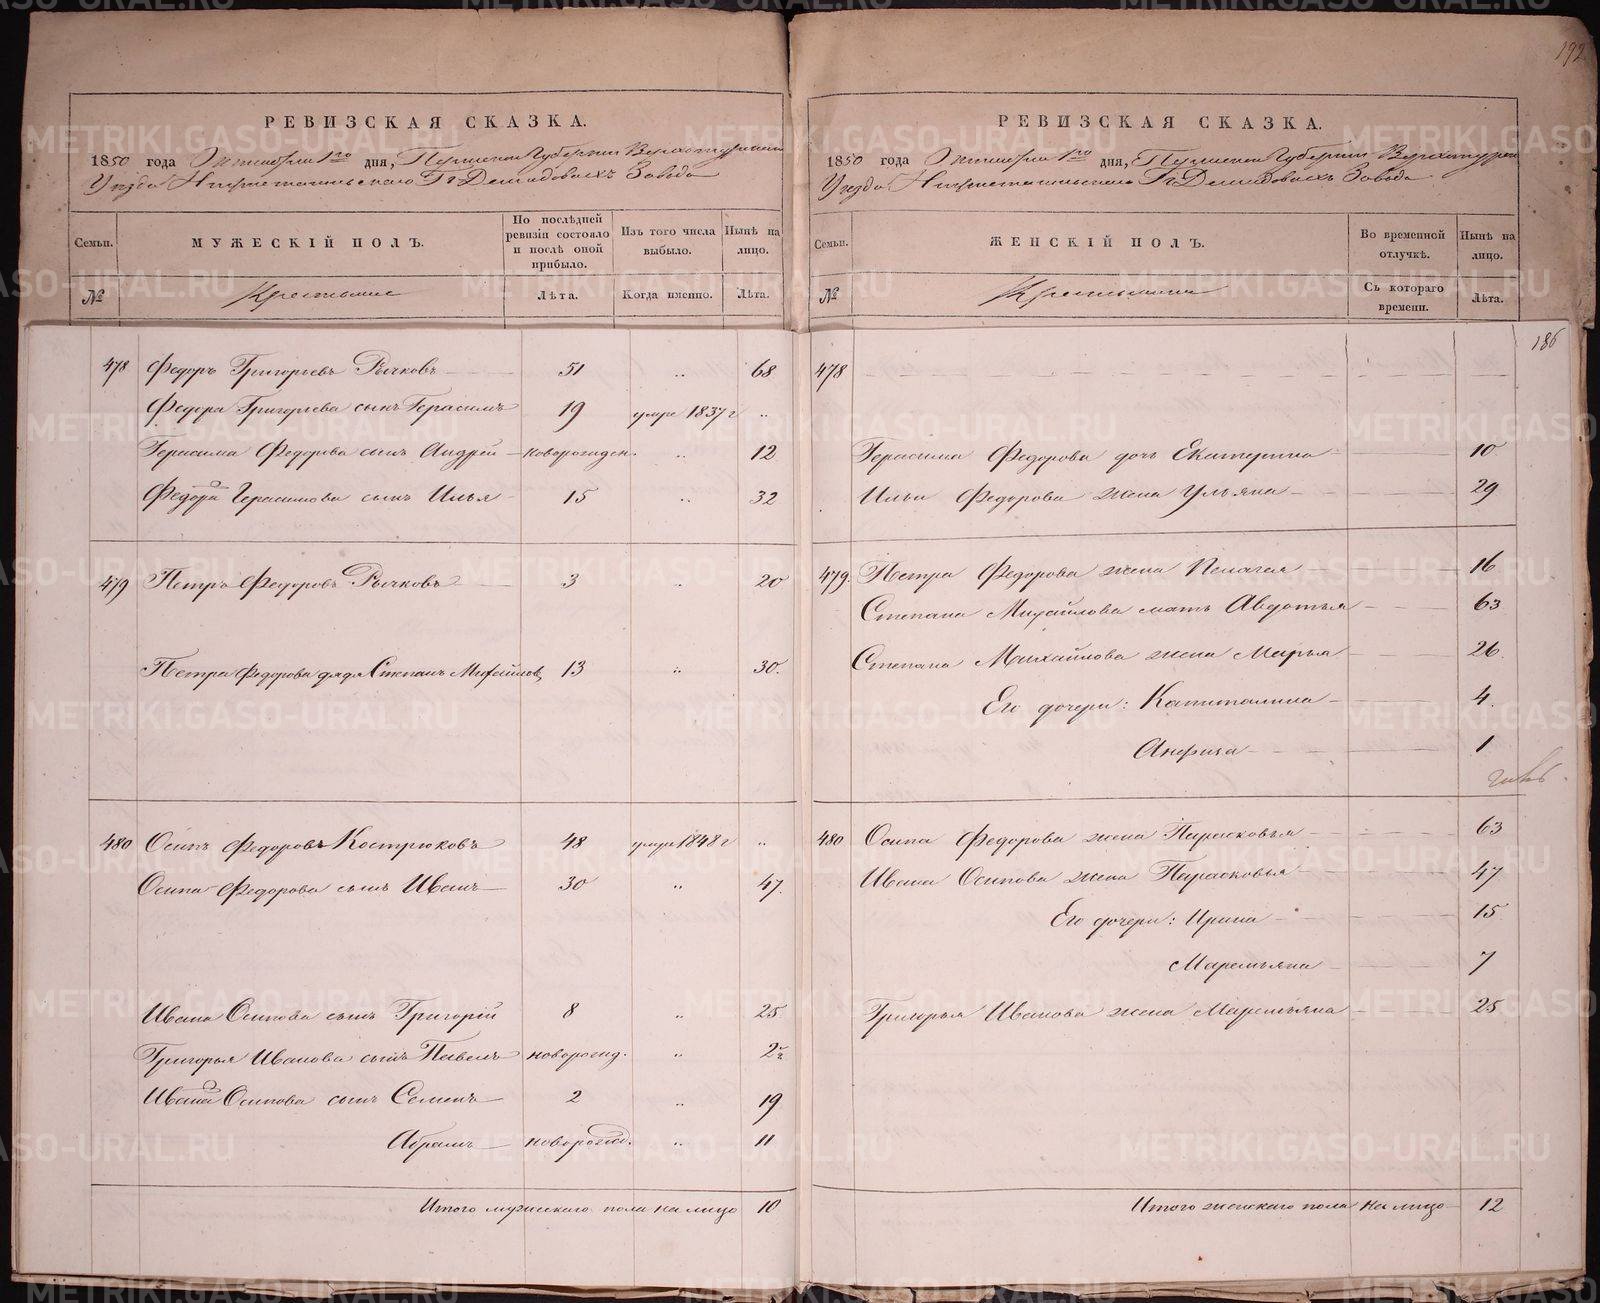 192
РЕВИЗСКАЯ СКАЗКА.
1850 года Октября 1го дня, Пермской Губернии Верхотурскаго
Уезда Нижнетагильскаго Гг Демидовыхъ Завода
Семьи. МУЖЕСКІЙ ПОЛЪ. По послѣдней ревизіи состояло и послѣ оной прибыло. Изъ того числа выбыло. Нынѣ на лицо.
№ Крестьяне Лѣта. Когда именно. Лѣта.
478 Федоръ Григорьевъ Рычковъ 51 „ 68
Федора Григорьева сынъ Герасимъ 19 умре 1837 г „
Герасима Федорова сынъ Андрей новорожден. „ 12
Федора 2 Герасимова сынъ Илья 15 „ 32
479 Петръ Федоровъ Рычковъ 3 „ 20
Петра Федорова дядя Степанъ Михайловъ 13 „ 30.
480 Осипъ Федоровъ Кострюковъ 48 умре 1848 г „
Осипа Федорова сынъ Иванъ 30 „ 47.
Ивана Осипова сынъ Григорій 8 „ 25
Григорья Иванова сынъ Павелъ новорожд. „ 2½
Ивана 2 Осипова сынъ Семенъ 2 „ 19
Абрамъ новорожд. „ 11
Итого мужескаго пола на лицо 10
РЕВИЗСКАЯ СКАЗКА.
1850 года Октября 1го дня, Пермской Губернии Верхотурскаго
Уезда Нижнетагильскаго Гг Демидовыхъ Завода
Семьи. ЖЕНСКІЙ ПОЛЪ. Во временной отлучкѣ. Нынѣ на лицо.
№ Крестьянки Съ котораго времени. Лѣта.
186
478
Герасима Федорова дочь Екатерина 10
Ильи Федорова жена Ульяна 29
479. Петра Федорова жена Пелагея 16
Степана Михайлова мать Авдотья 63
Степана Михайлова жена Марья 26
Его дочери: Капитолина 4
Анфиса 1
480 Осипа Федорова жена Парасковья 63
Ивана Осипова жена Парасковья 47
Его дочери: Ирина 15
Маремьяна 7
Григорья Иванова жена Маремьяна 25
Итого женскаго пола на лицо 12
METRIKI.GASO-URAL.RU